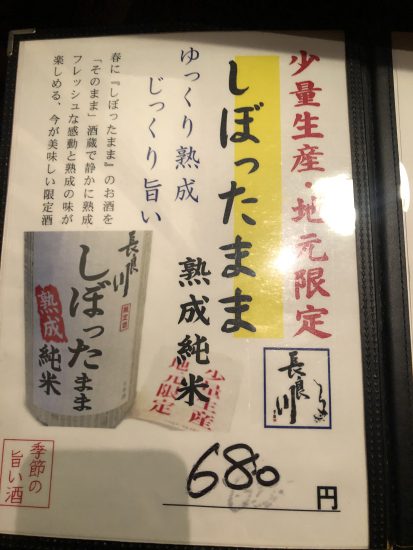 少量生産・地元限定
しぼったまま
熟成純米
ゆっくり熟成
じっくり旨い
春に『しぼったまま』のお酒を
「そのまま」酒蔵で静かに熟成
フレッシュな感動と熟成の味が
楽しめる、今が美味しい限定酒
長良川
しぼったまま
熟成純米
少量生産
地元限定
長良川
680円
季節の
旨い酒